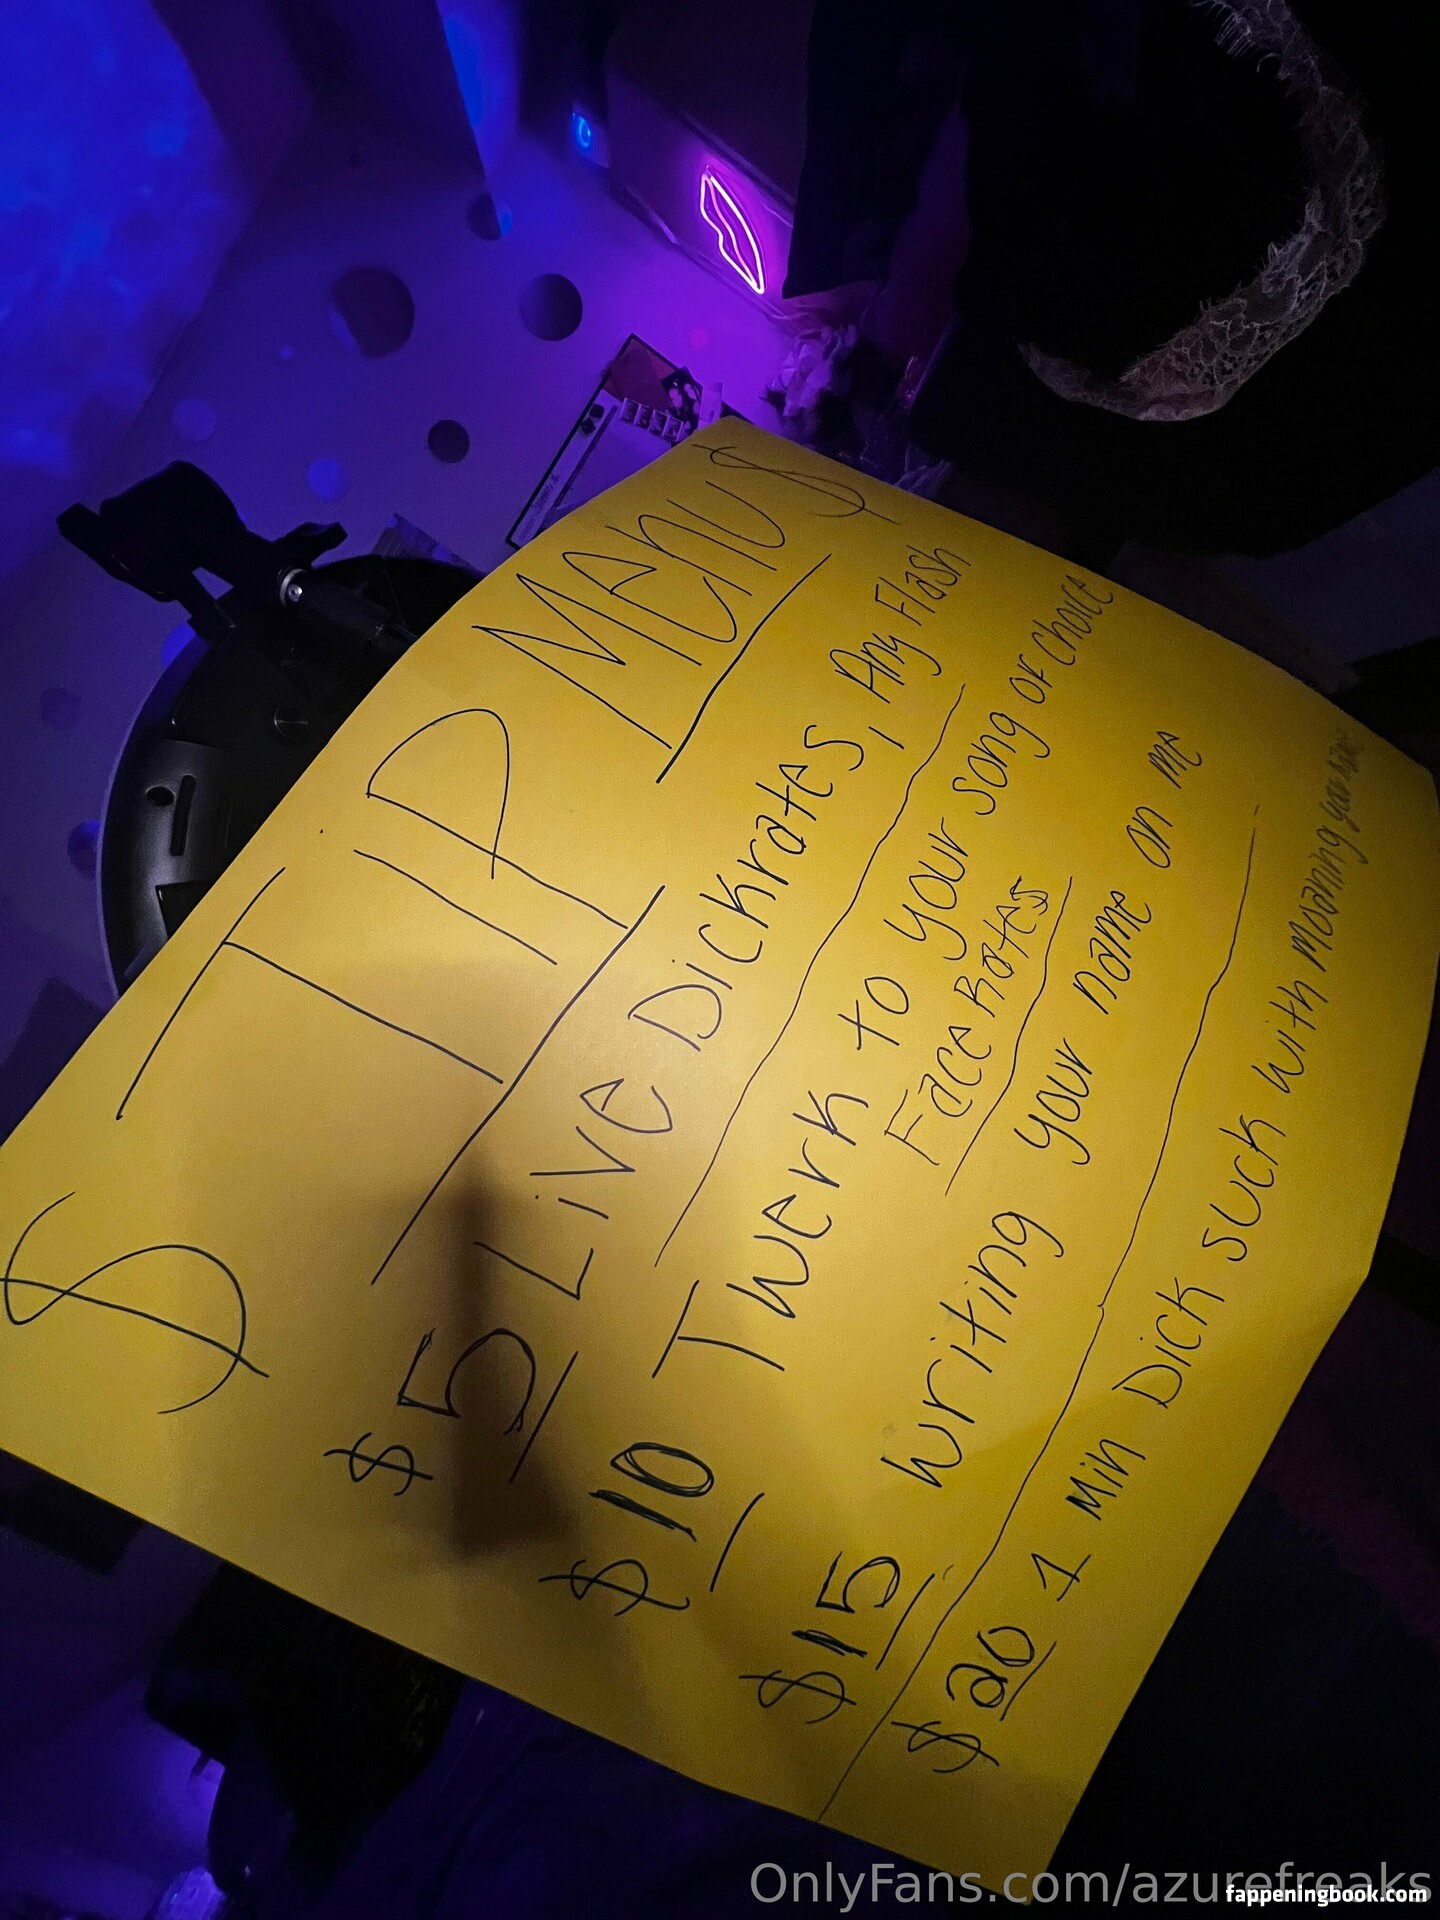 $ TIP MENU $
$5 Live Dickrates, Any Flash
$10 Twerk to your song of choice
Face Rates
$15 writing your name on me
$20 1 min Dick suck with moaning your name
OnlyFans.com/azurefreaks
fappeningbook.com